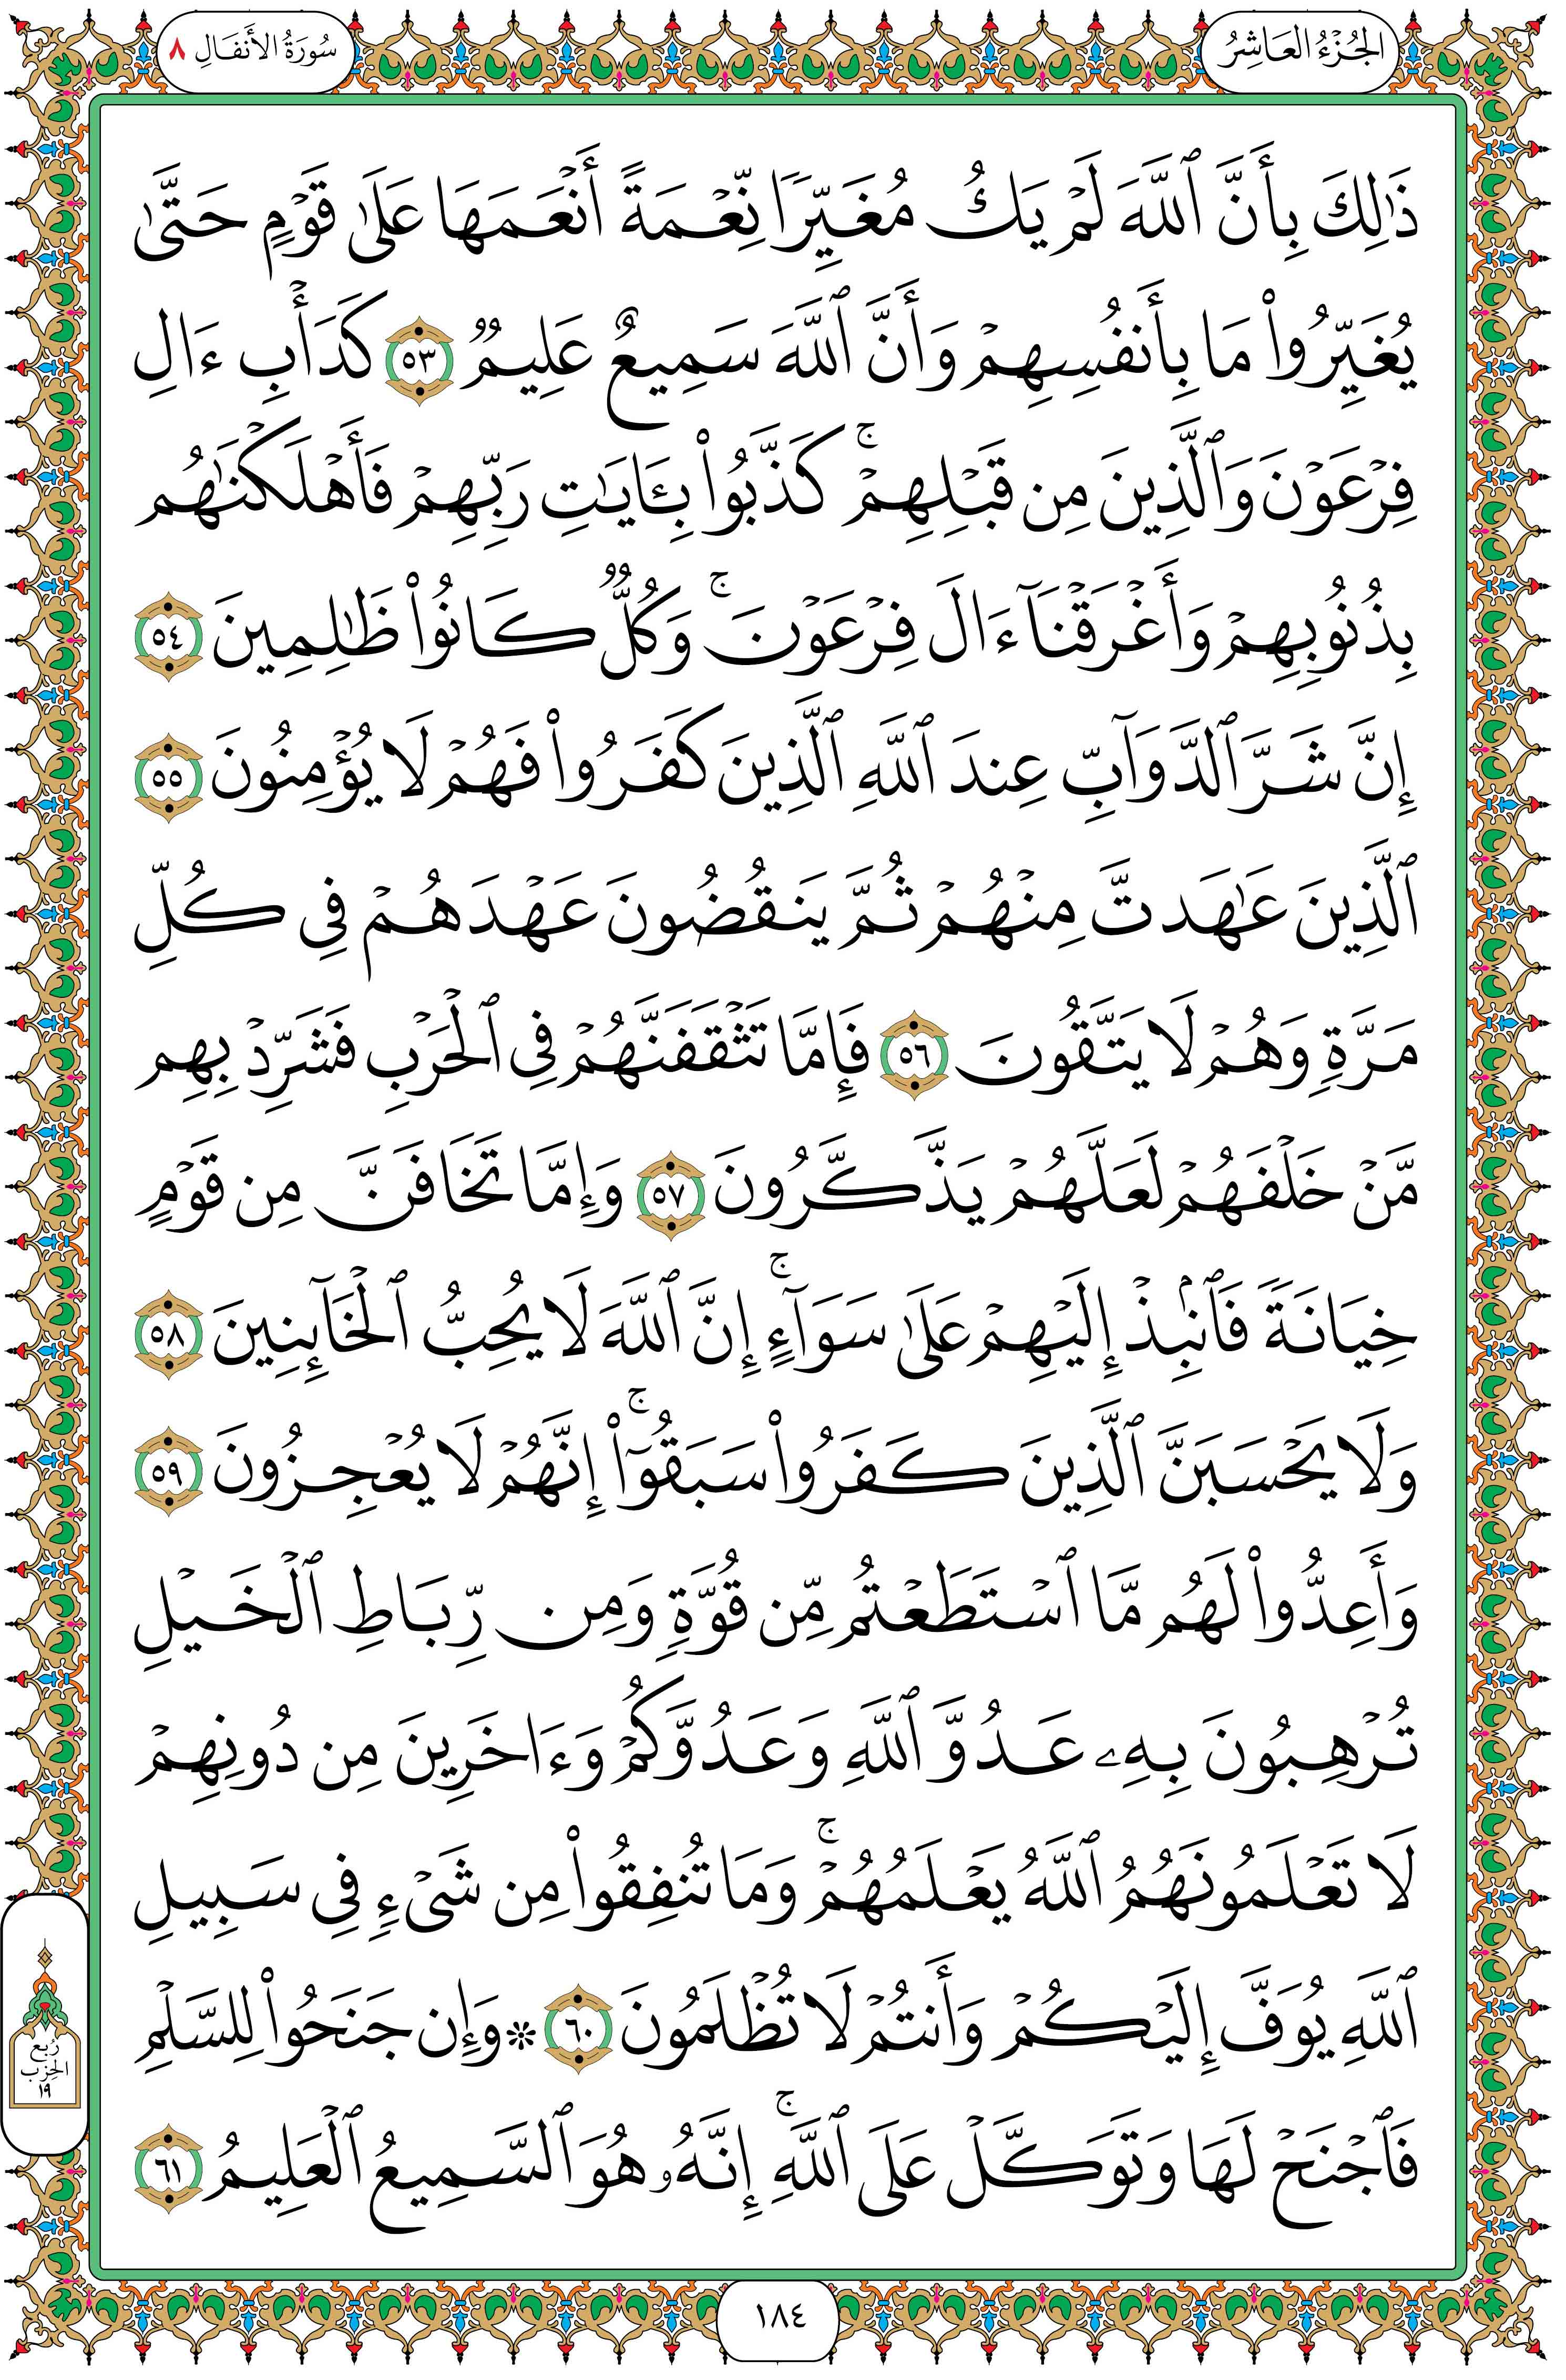 الجُزْءُ العَاشِرُ
سُورَةُ الأَنفَالِ ٨
ذَٰلِكَ بِأَنَّ ٱللَّهَ لَمْ يَكُ مُغَيِّرًا نِّعْمَةً أَنْعَمَهَا عَلَىٰ قَوْمٍ حَتَّىٰ
يُغَيِّرُوا۟ مَا بِأَنفُسِهِمْ وَأَنَّ ٱللَّهَ سَمِيعٌ عَلِيمٌ ٥٣ كَدَأْبِ ءَالِ
فِرْعَوْنَ وَٱلَّذِينَ مِن قَبْلِهِمْ ۚ كَذَّبُوا۟ بِـَٔايَـٰتِ رَبِّهِمْ فَأَهْلَكْنَـٰهُم
بِذُنُوبِهِمْ وَأَغْرَقْنَآ ءَالَ فِرْعَوْنَ ۚ وَكُلٌّ كَانُوا۟ ظَـٰلِمِينَ ٥٤
إِنَّ شَرَّ ٱلدَّوَآبِّ عِندَ ٱللَّهِ ٱلَّذِينَ كَفَرُوا۟ فَهُمْ لَا يُؤْمِنُونَ ٥٥
ٱلَّذِينَ عَـٰهَدتَّ مِنْهُمْ ثُمَّ يَنقُضُونَ عَهْدَهُمْ فِى كُلِّ
مَرَّةٍ وَهُمْ لَا يَتَّقُونَ ٥٦ فَإِمَّا تَثْقَفَنَّهُمْ فِى ٱلْحَرْبِ فَشَرِّدْ بِهِم
مَّنْ خَلْفَهُمْ لَعَلَّهُمْ يَذَّكَّرُونَ ٥٧ وَإِمَّا تَخَافَنَّ مِن قَوْمٍ
خِيَانَةً فَٱنۢبِذْ إِلَيْهِمْ عَلَىٰ سَوَآءٍ ۚ إِنَّ ٱللَّهَ لَا يُحِبُّ ٱلْخَآئِنِينَ ٥٨
وَلَا يَحْسَبَنَّ ٱلَّذِينَ كَفَرُوا۟ سَبَقُوٓا۟ ۚ إِنَّهُمْ لَا يُعْجِزُونَ ٥٩
وَأَعِدُّوا۟ لَهُم مَّا ٱسْتَطَعْتُم مِّن قُوَّةٍ وَمِن رِّبَاطِ ٱلْخَيْلِ
تُرْهِبُونَ بِهِۦ عَدُوَّ ٱللَّهِ وَعَدُوَّكُمْ وَءَاخَرِينَ مِن دُونِهِمْ
لَا تَعْلَمُونَهُمُ ٱللَّهُ يَعْلَمُهُمْ ۚ وَمَا تُنفِقُوا۟ مِن شَىْءٍ فِى سَبِيلِ
ٱللَّهِ يُوَفَّ إِلَيْكُمْ وَأَنتُمْ لَا تُظْلَمُونَ ٦٠ * وَإِن جَنَحُوا۟ لِلسَّلْمِ
فَٱجْنَحْ لَهَا وَتَوَكَّلْ عَلَى ٱللَّهِ ۚ إِنَّهُۥ هُوَ ٱلسَّمِيعُ ٱلْعَلِيمُ ٦١
رُبع
الحِزب
١٩
١٨٤